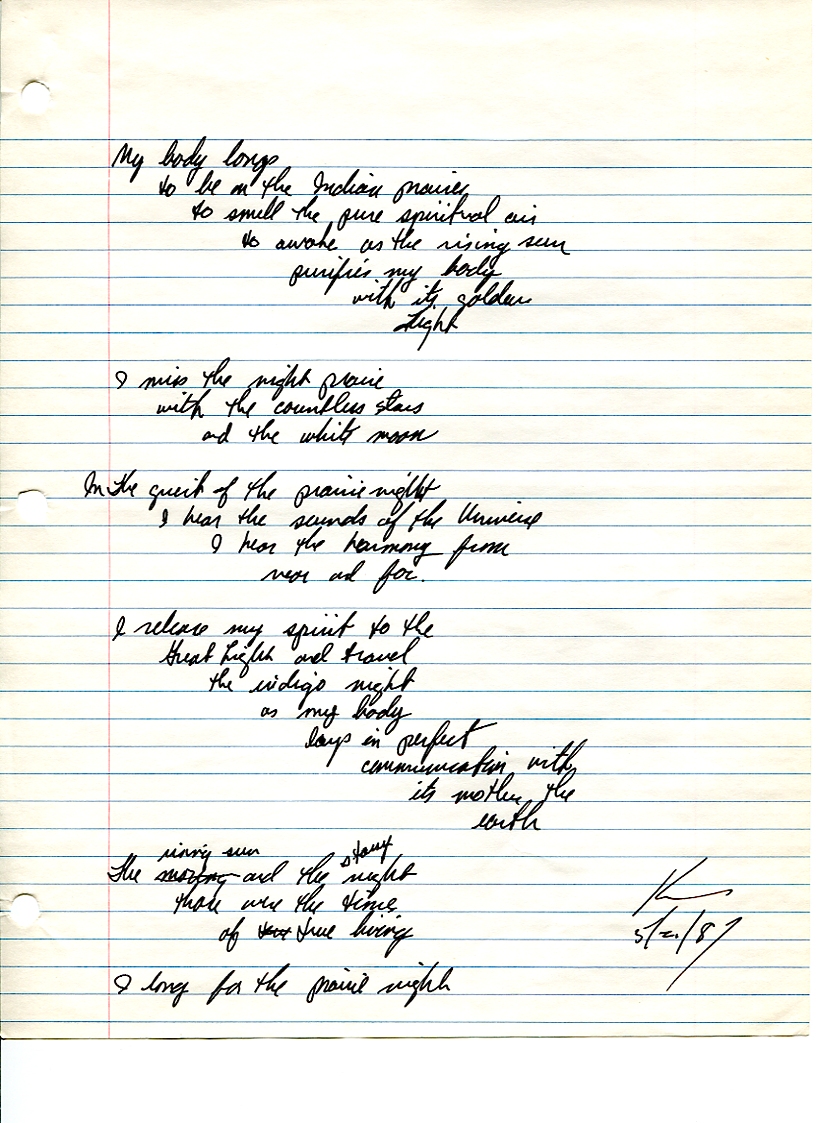 My body longs
to be on the Indian prairies
to smell the pure spiritual air
to awake as the rising sun
purifies my body
with its golden
Light
I miss the night prairie
with the countless stars
and the white moon
In the quiet of the prairie night
I hear the sounds of the Universe
I hear the harmony from
near and far.
I release my spirit to the
Great Light and travel
the indigo night
as my body
lays in perfect
communication with
its mother the
earth
rising sun
The morning and the starry night
those were the times
of true living
5/21/87
I long for the prairie night